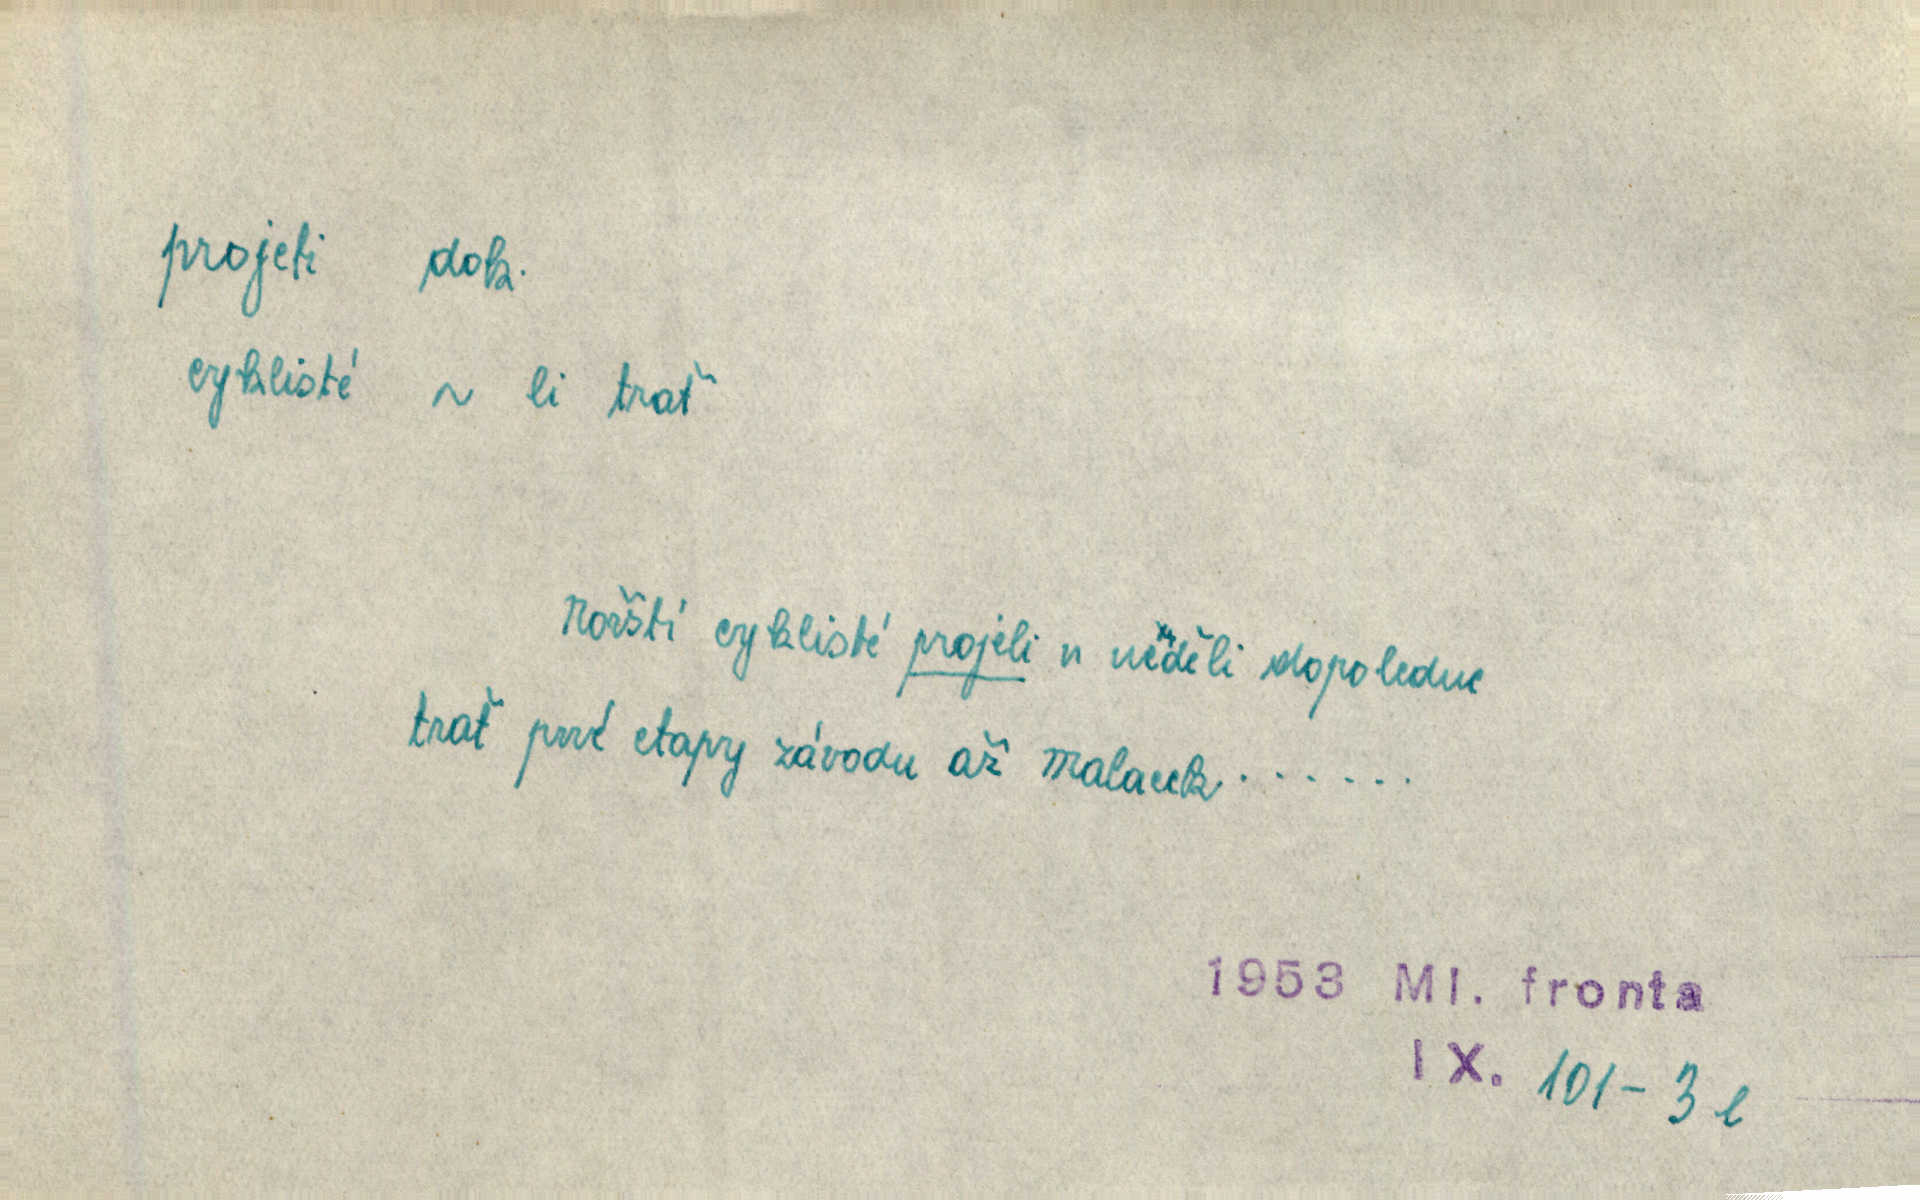 projeti dok.
cyklisté ~ li trať
Norští cyklisté projeli v neděli dopoledne
trať prvé etapy závodu až Malacek.......
1953 Ml. fronta
IX. 101-3 l